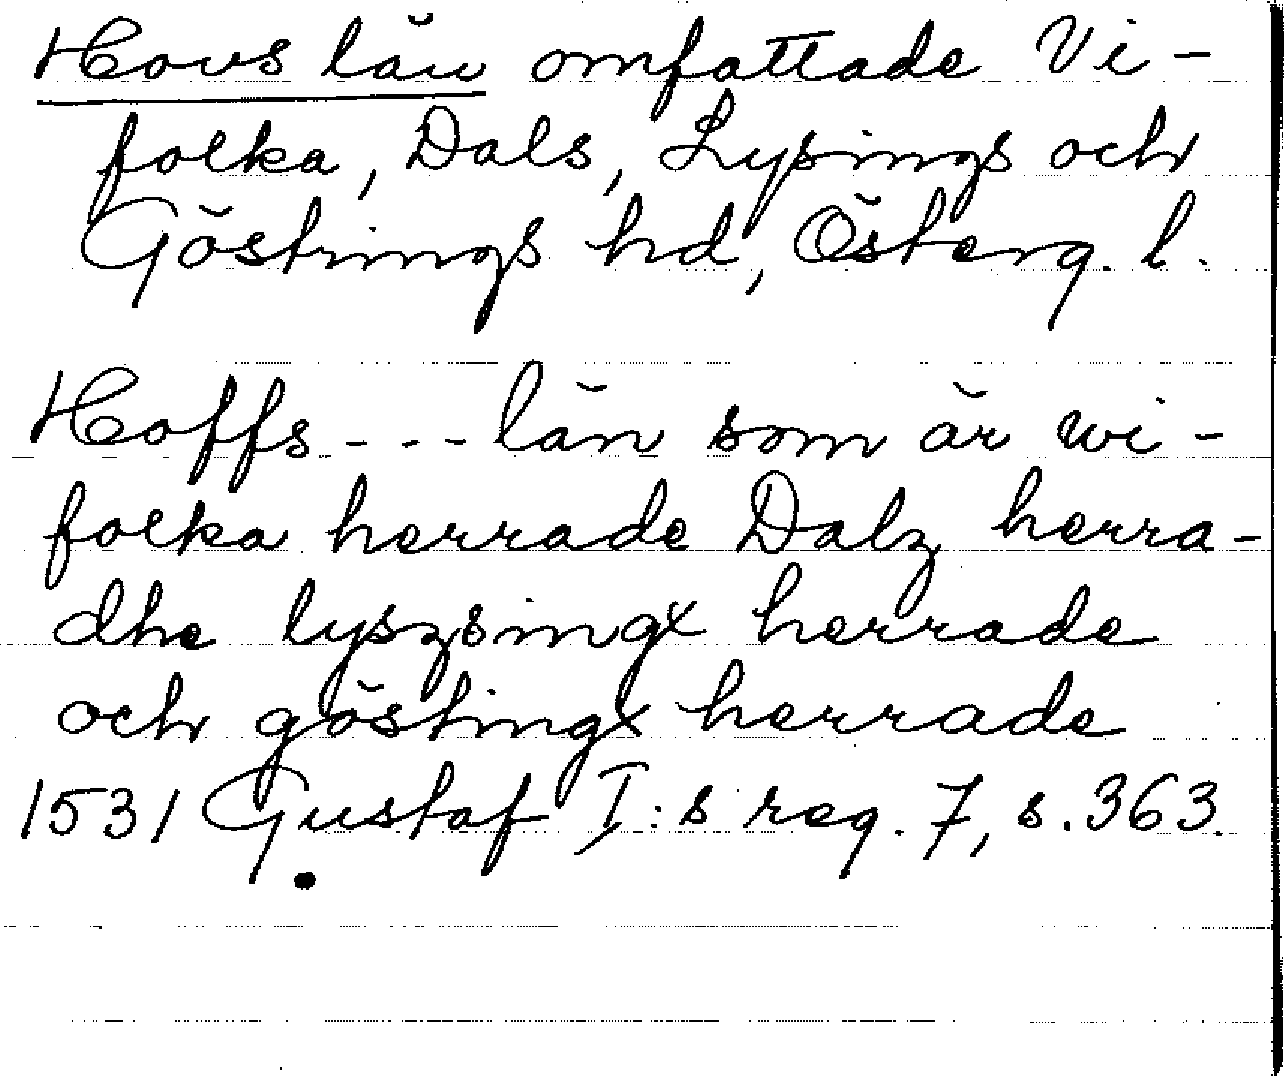 Hovs län omfattade Vi-
folka, Dals, Lysings och
Göstrings hd, Österg. l.
Hoffs - - - län som är wi-
folka herrade Dalz herra-
dhe lyszsingx herrade
och göstingx herrade
1531 Gustaf I:s reg. 7, s. 363.